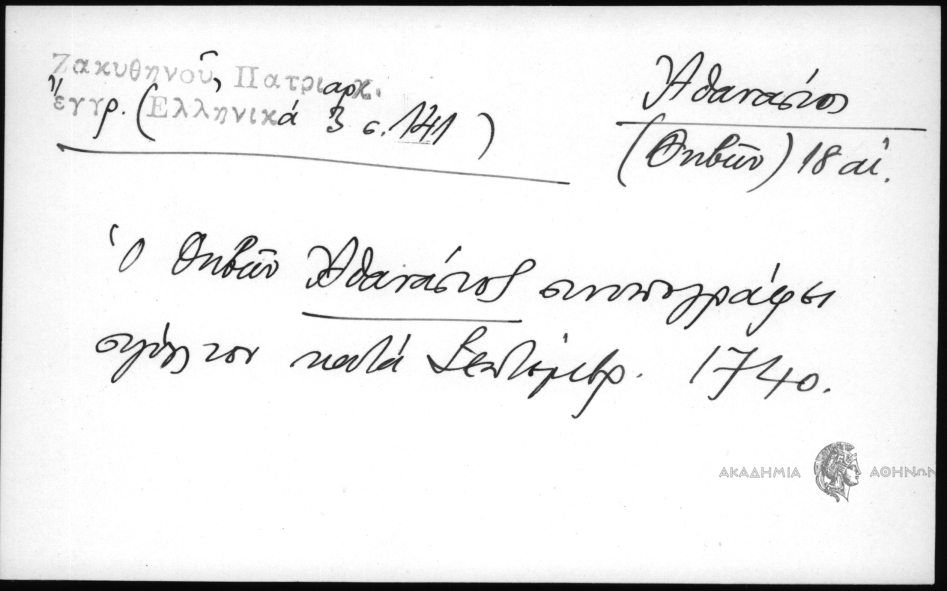 Ζακυθηνοῦ, Πατριαρχ.
ἔγγρ. (Ἑλληνικά 3 σ. 141)
Ἀθανάσιος
(Θηβῶν) 18 αἰ.
Ὁ Θηβῶν Ἀθανάσιος συνυπογράφει
κατά Σεπτέμβρ. 1740.
ΑΚΑΔΗΜΙΑ ΑΘΗΝΩΝ